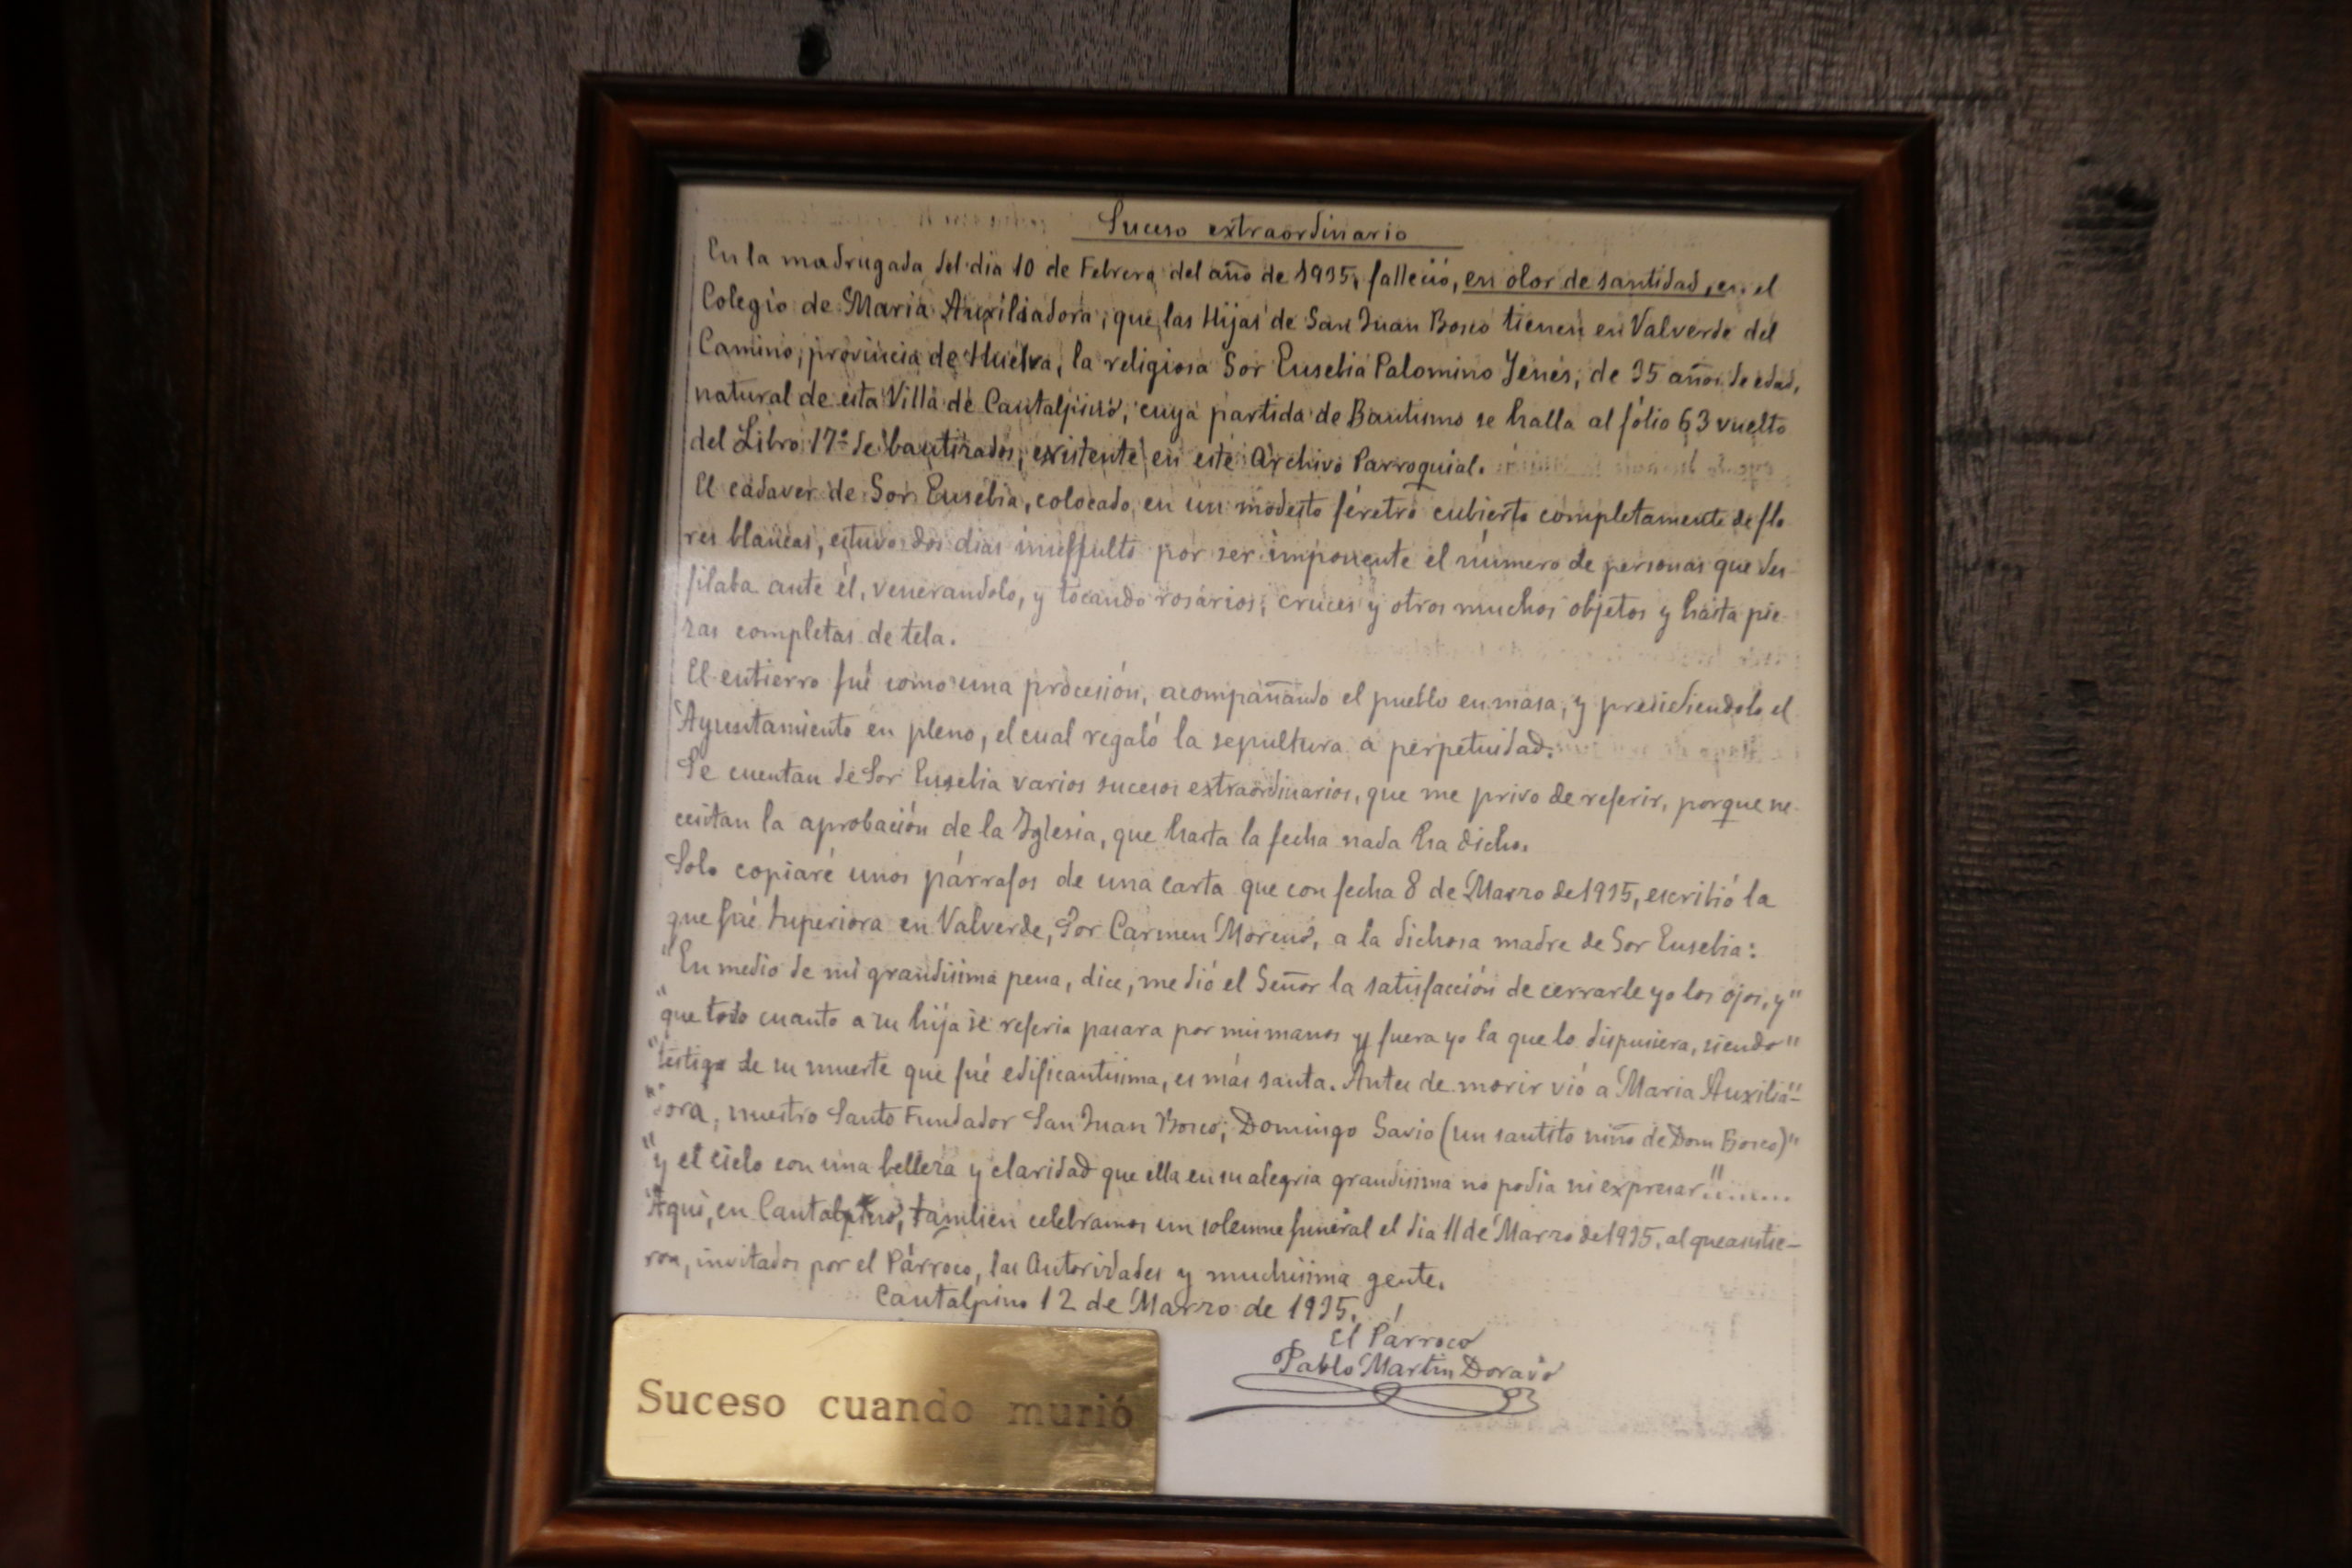 Suceso extraordinario
En la madrugada del dia 10 de Febrero del año de 1935, falleció, en olor de santidad, en el
Colegio de Maria Auxiliadora, que las Hijas de San Juan Bosco tienen en Valverde del
Camino, provincia de Huelva, la religiosa Sor Eusebia Palomino Yenés, de 35 años de edad,
natural de esta Villa de Cantalpino, cuya partida de Bautismo se halla al fólio 63 vuelto
del Libro 17º de bautizados, existente en este Archivo Parroquial.
El cadaver de Sor Eusebia, colocado en un modesto féretro cubierto completamente de flo
res blancas, estuvo dos dias insepulto por ser imponente el número de personas que des-
filaba ante él, venerandolo, y tocando rosarios, cruces y otros muchos objetos y hasta pie-
zas completas de tela.
El entierro fué como una procesión, acompañando el pueblo en masa, y presidiendolo el
Ayuntamiento en pleno, el cual regaló la sepultura a perpetuidad.
Se cuentan de Sor Eusebia varios sucesos extraordinarios, que me privo de referir, porque ne-
cesitan la aprobación de la Iglesia, que hasta la fecha nada ha dicho.
Solo copiaré unos párrafos de una carta que con fecha 8 de Marzo de 1935, escribió la
que fué Superiora en Valverde, Sor Carmen Moreno, a la dichosa madre de Sor Eusebia:
"En medio de mi grandisima pena, dice, me dió el Señor la satisfacción de cerrarle yo los ojos, y"
"que todo cuanto a su hija se referia pasara por mis manos y fuera yo la que lo dispusiera, siendo"
"testigo de su muerte que fué edificantisima, es más santa. Antes de morir vió a Maria Auxilia"-
"dora, nuestro Santo Fundador San Juan Bosco; Domingo Savio (un santito niño de Dom Bosco)"
"y el cielo con una belleza y claridad que ella en su alegria grandisima no podia ni expresar."......
Aqui, en Cantalpino, tambien celebramos un solemne funeral el dia 11 de Marzo de 1935, al que asistie-
ron, invitados por el Párroco, las Autoridades y muchisima gente.
Cantalpino 12 de Marzo de 1935.
El Párroco
Pablo Martin Dorado
Suceso cuando murió